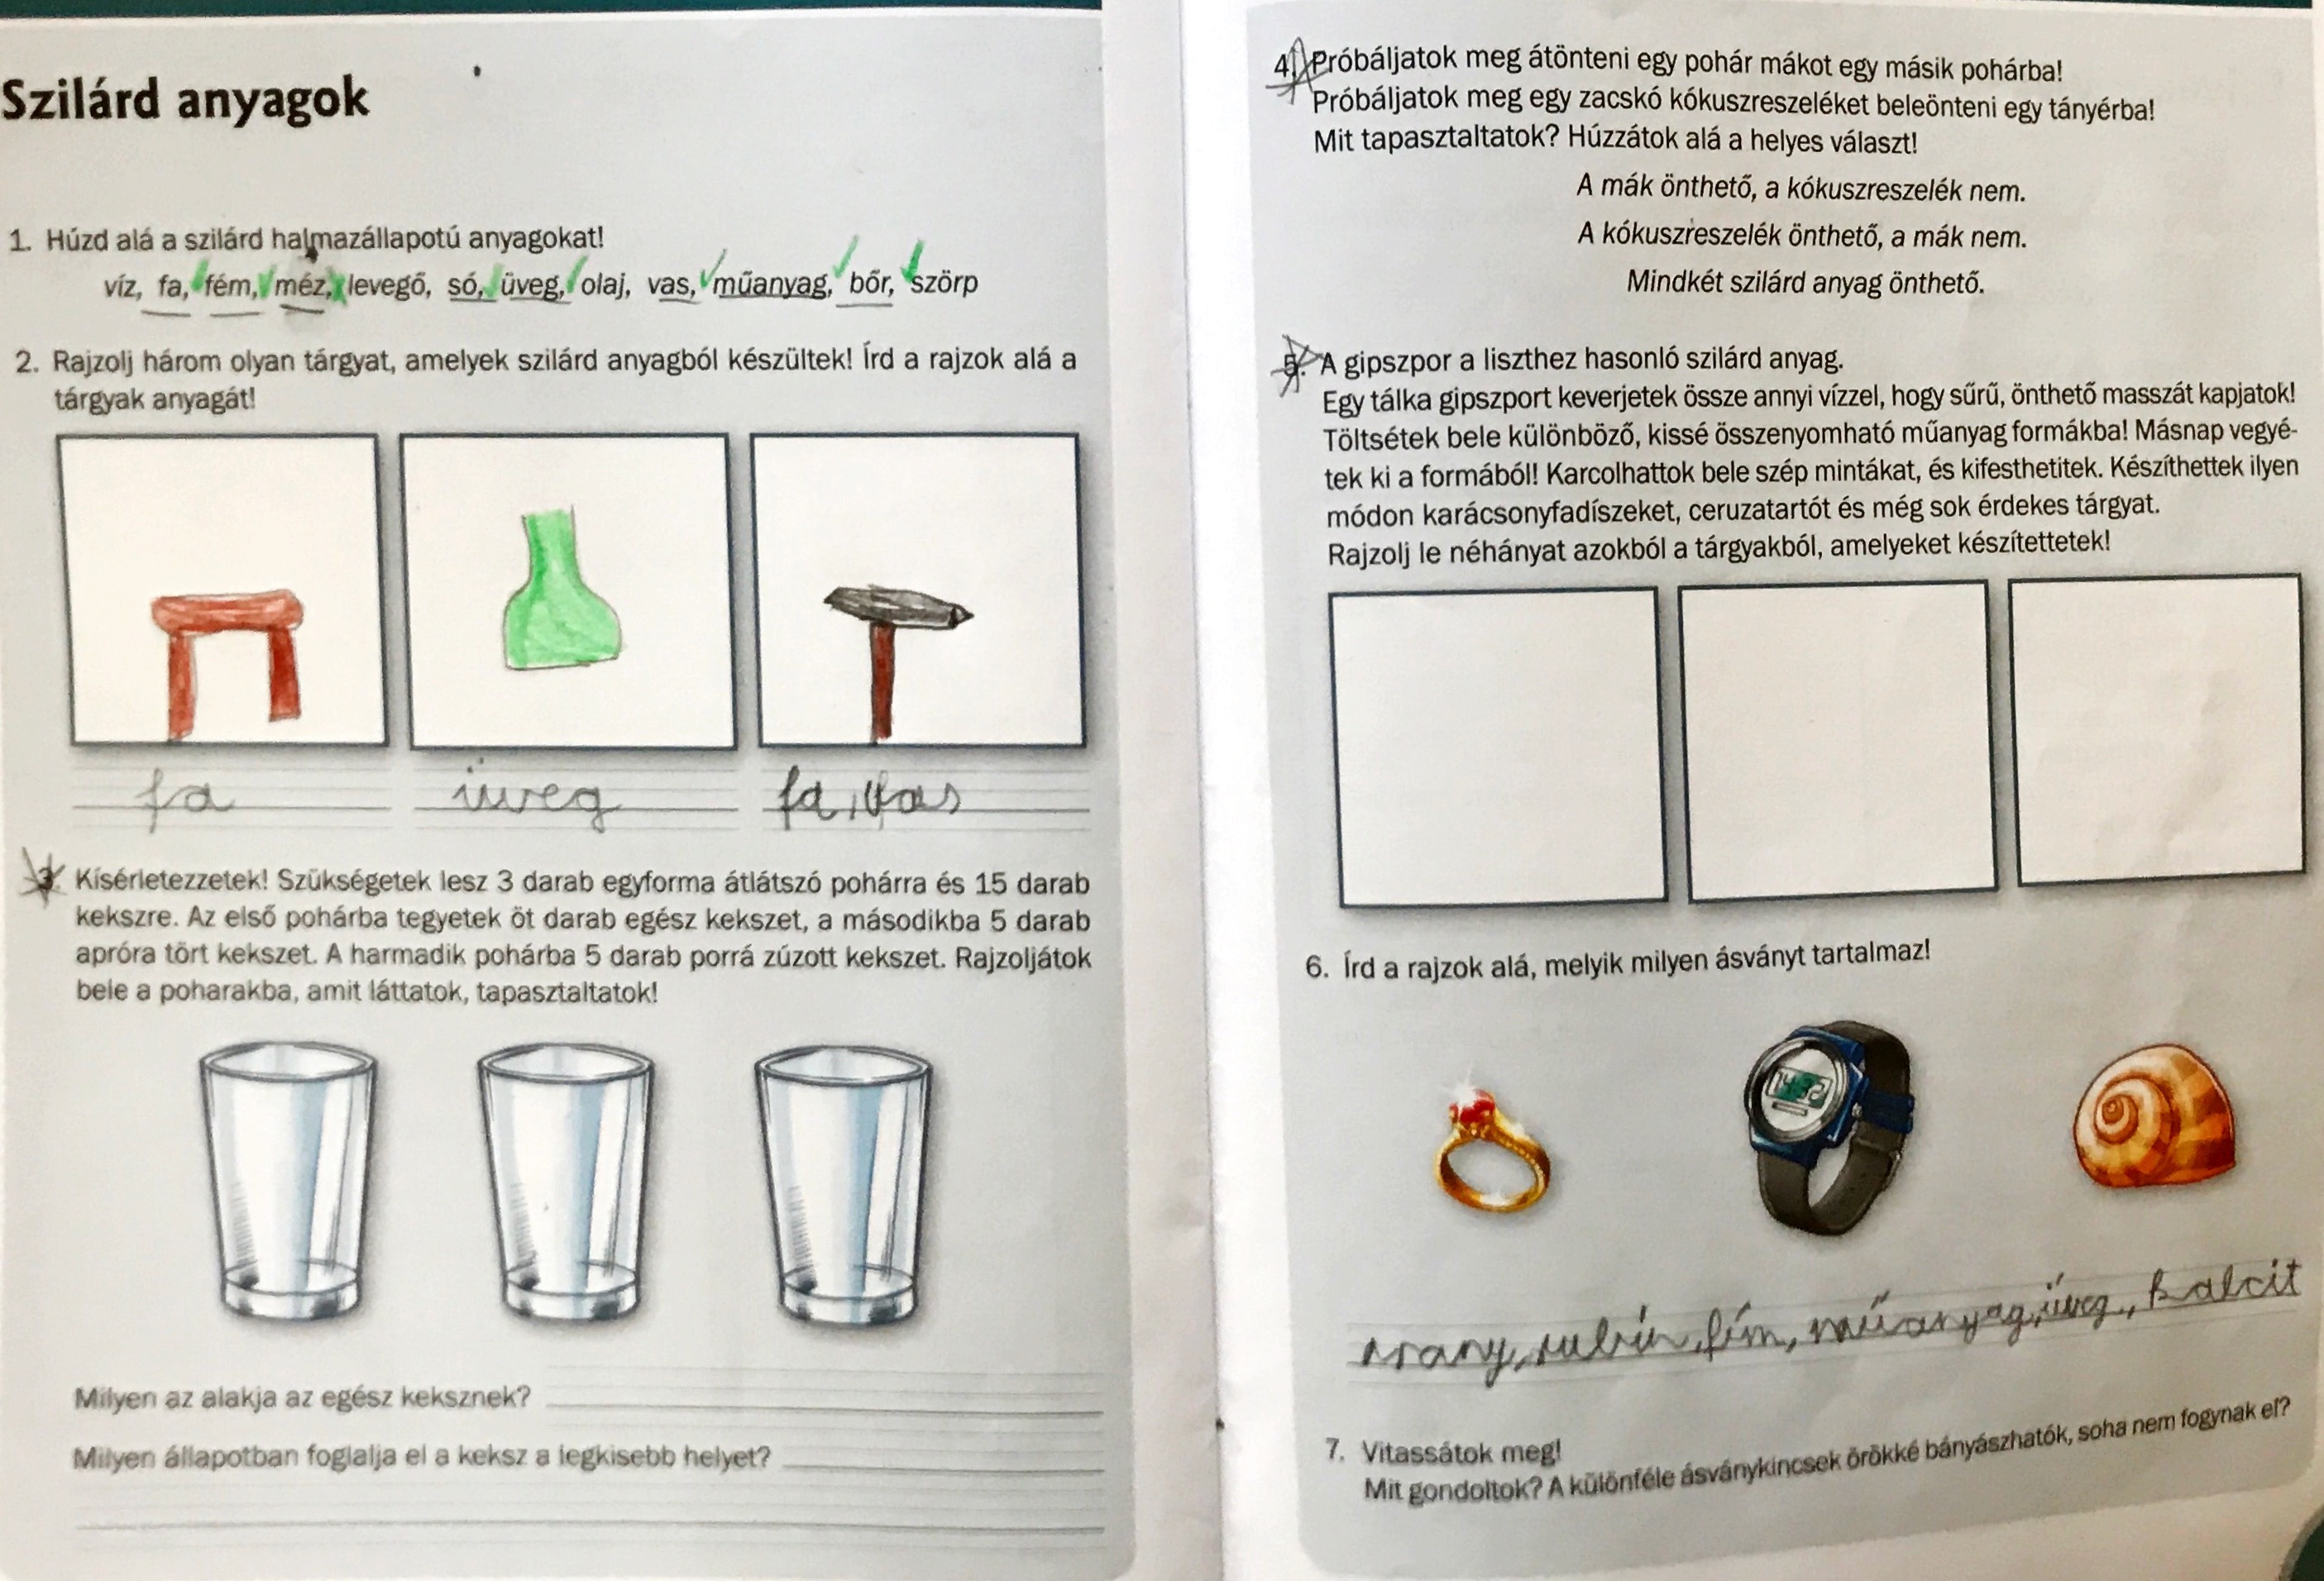 Szilárd anyagok
1. Húzd alá a szilárd halmazállapotú anyagokat!
víz, fa, fém, méz, levegő, só, üveg, olaj, vas, műanyag, bőr, szörp
2. Rajzolj három olyan tárgyat, amelyek szilárd anyagból készültek! Írd a rajzok alá a
tárgyak anyagát!
fa
üveg
fa, vas
3. Kísérletezzetek! Szükségetek lesz 3 darab egyforma átlátszó pohárra és 15 darab
kekszre. Az első pohárba tegyetek öt darab egész kekszet, a másodikba 5 darab
apróra tört kekszet. A harmadik pohárba 5 darab porrá zúzott kekszet. Rajzoljátok
bele a poharakba, amit láttatok, tapasztaltatok!
Milyen az alakja az egész keksznek?
Milyen állapotban foglalja el a keksz a legkisebb helyet?
4. Próbáljatok meg átönteni egy pohár mákot egy másik pohárba!
Próbáljatok meg egy zacskó kókuszreszeléket beleönteni egy tányérba!
Mit tapasztaltatok? Húzzátok alá a helyes választ!
A mák önthető, a kókuszreszelék nem.
A kókuszreszelék önthető, a mák nem.
Mindkét szilárd anyag önthető.
5. A gipszpor a liszthez hasonló szilárd anyag.
Egy tálka gipszport keverjetek össze annyi vízzel, hogy sűrű, önthető masszát kapjatok!
Töltsétek bele különböző, kissé összenyomható műanyag formákba! Másnap vegyé-
tek ki a formából! Karcolhattok bele szép mintákat, és kifesthetitek. Készíthettek ilyen
módon karácsonyfadíszeket, ceruzatartót és még sok érdekes tárgyat.
Rajzolj le néhányat azokból a tárgyakból, amelyeket készítettetek!
6. Írd a rajzok alá, melyik milyen ásványt tartalmaz!
14:32
arany, rubin, fém, műanyag, üveg, kalcit
7. Vitassátok meg!
Mit gondoltok? A különféle ásványkincsek örökké bányászhatók, soha nem fogynak el?